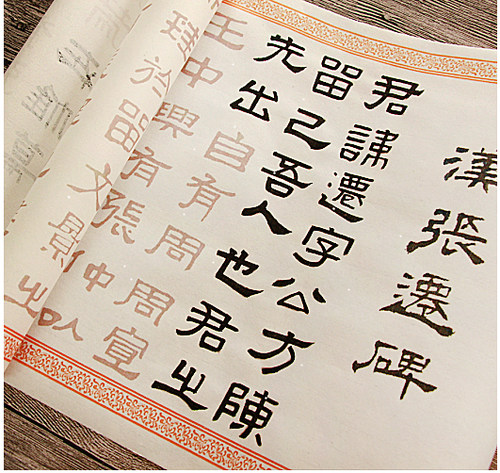 漢張遷碑
君諱遷字公方陳
留己吾人也君之
先出自有周周宣
王中興有張中
於留文景之